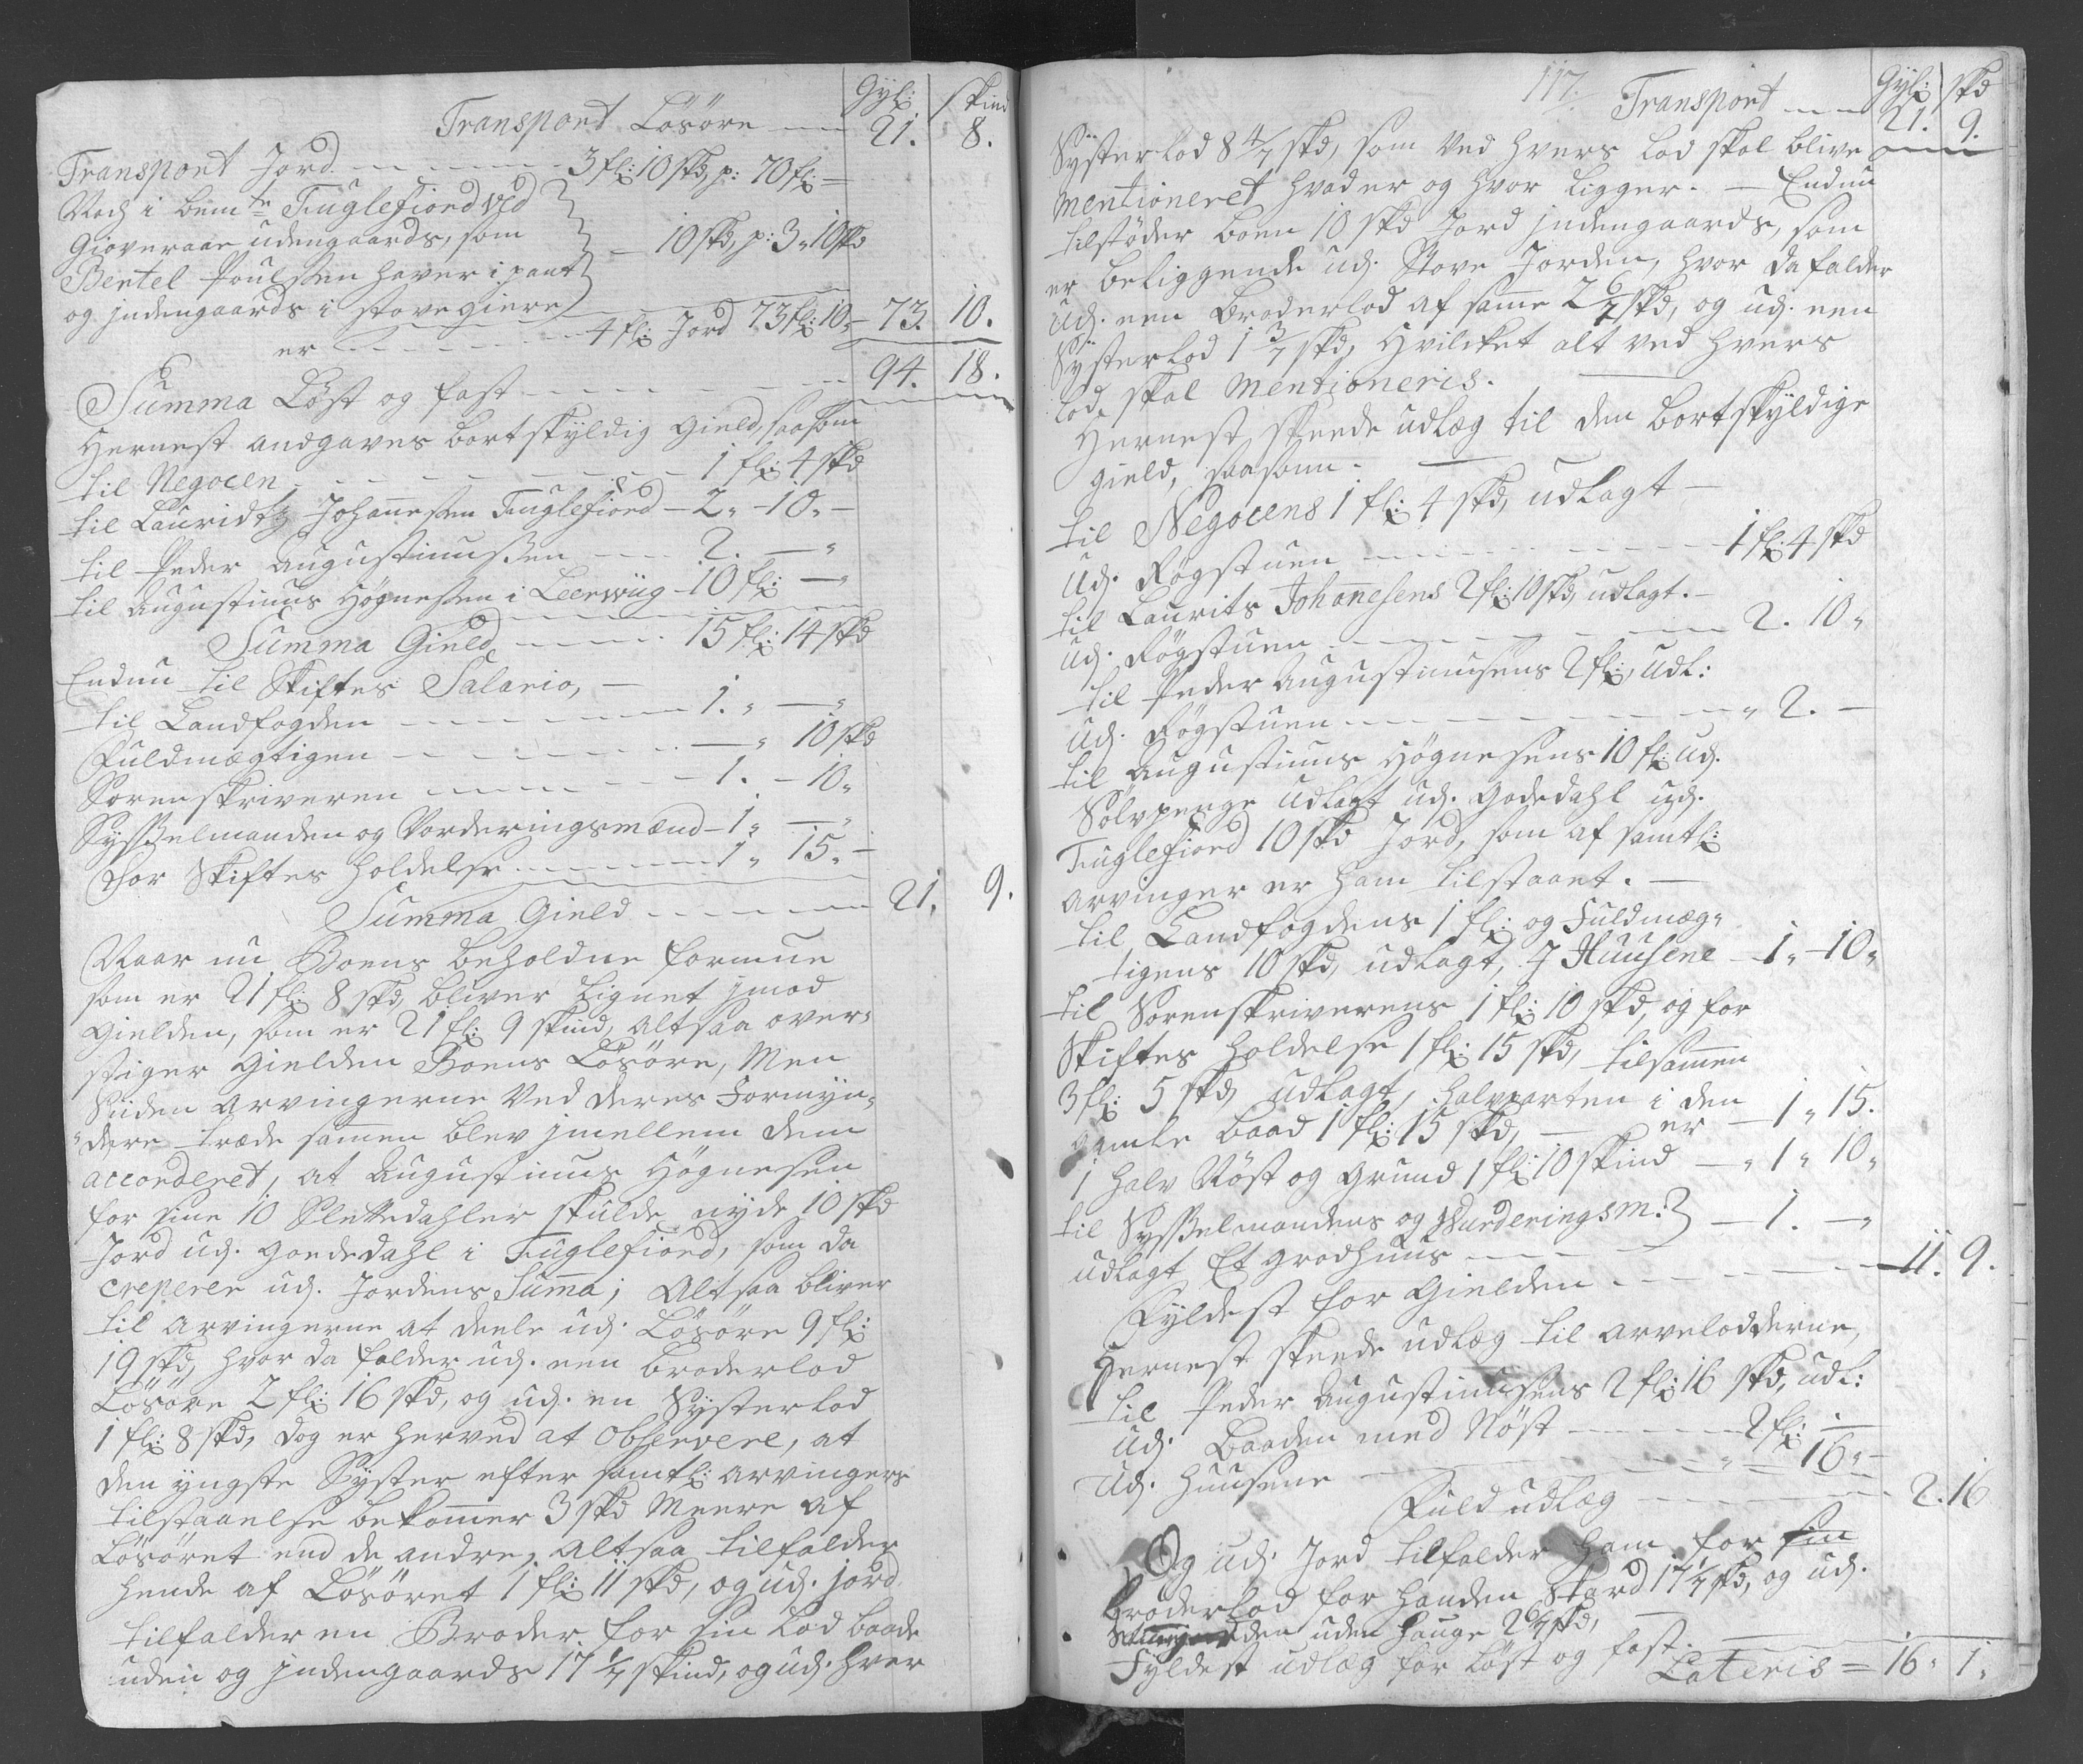 Gyl: Skind
Transport Løsøre --- 21. 8.
Transport Jord ------ 3 fl: 10 skd, p: 70 fl: =
Noch i bemte Fuglefiord ved
Gioveraae udengaards, som
Bentel Poulsen haver i pant
og indengaards i støvegiere
— 10 skd, p: 3 " 10 skd
er ------ 4 fl: Jord 73 fl: 10 " — 73. 10.
Summa Løst og fast ------ 94. 18.
Hernest andgaves bortskyldig Gield, saasom
til Negocen ------ 1 fl: 4 skd
til Lauridtz Johannesen Fuglefiord — 2 " — 10 " —
til Peder Augustinussen ---- 2. — "
til Augustinus Høgnesen i Leerwiig — 10 fl: — "
Summa Gield ------ 15 fl: 14 skd
Endnu til Skiftes Salario, —
til Landfogden ------ 1. " — "
Fuldmægtigen ------ — " 10 skd
Sorenskriveren ------ 1. — 10 "
Sysselmanden og Vorderingsmænd — 1 " — "
For Skiftes holdelse ------ 1 " 15. —
Summa Gield ------ 21. 9.
Naar nu Boens beholdne formue
som er 21 fl: 8 skd, bliver lignet imod
Gielden, som er 21 fl: 9 skind, altsaa over-
stiger Gielden Boens Løsøre, Men
Siiden Arvingerne ved deres Formyn-
dere træde samen blev imellem dem
accorderet, at Augustinus Høgnesen
for sine 10 Slettedahler skulde nyde 10 skd
Jord udj. Goededahl i Fuglefiord, som da
creperer udj. Jordens Suma; Altsaa bliver
til Arvingerne at deele udj. Løsøre 9 fl:
19 skd, hvor da falder udj. een broderlod
Løsøre 2 fl: 16 skd, og udj. en Systerlod
1 fl: 8 skd, dog er herved at observere, at
den yngste Syster efter samtl: arvingers
tilstaaelse bekomer 3 skd meere af
Løsøret end de andre, altsaa tilfalder
hende af Løsøret 1 fl: 11 skd, og udj. jord
tilfalder en Broder for sin Lod baade
uden og indengaards 17 1/7 skind, og udj. hver
117. Gyl: skd
Transport --- 21. 9.
Systerlod 8 4/7 skd, som ved hvers Lod skal blive
mentioneret hvad er og hvor ligger. — Endnu
tilstøder boen 10 skd Jord indengaards, som
er beliggende udj. Stove Jorden, hvor da falder
udj. een Broderlod af same 2 6/7 skd, og udj. een
Systerlod 1 3/7 skd, Hvilcket alt ved hvers
lod skal mentioneris. —
Hernest skeede udlæg til den bortskyldige
gield, saasom. —
til Negocens 1 fl: 4 skd, udlagt —
Udj. Røgstuen ------ 1 fl: 4 skd
til Laurits Johanesens 2 fl: 10 skd, udlagt. —
udj. Røgstuen ------ 2. 10 "
til Peder Augustinusens 2 fl:, udl:
udj. Røgstuen ------ " 2. —
til Augustinus Høgnesens 10 fl: udj.
Sølvpenge udlagt udj. Godedahl udj.
Fuglefiord 10 skd Jord, som af samtl:
arvinger er ham tilstaaet. —
til Landfogdens 1 fl: og Fuldmæg-
tigens 10 skd, udlagt, J Huusene — 1 " — 10 "
til Sorenskriverens 1 fl: 10 skd, og for
Skiftes holdelse 1 fl: 15 skd, tilsamen
3 fl: 5 skd, udlagt, halvparten i den
gamle baad 1 fl: 15 skd, — er — 1 " 15.
1 halv Nøst og grund 1 fl: 10 skind — " 1 " 10 "
til Sysselmandens og Vurderingsm:
udlagt Et grodhuus ---- — 1. — "
Fyldest for Gielden ------ 11. 9.
Hernest skeede udlæg til arvelodderne,
til Peder Augustinussens 2 fl: 16 skd, udl:
Udj. Baaden med Nøst ------ 2 fl: —
Udj. Huusene ------ " — 16 " —
Fuld udlæg ------ 2. 16
Og udj. Jord tilfalder ham for sin
broderlod for handen 17 1/7 skd, og udj.
den uden hauge 2 6/7 skd,
Fyldest udlæg for løst og fast. —
Lateris = 16 " 1 "